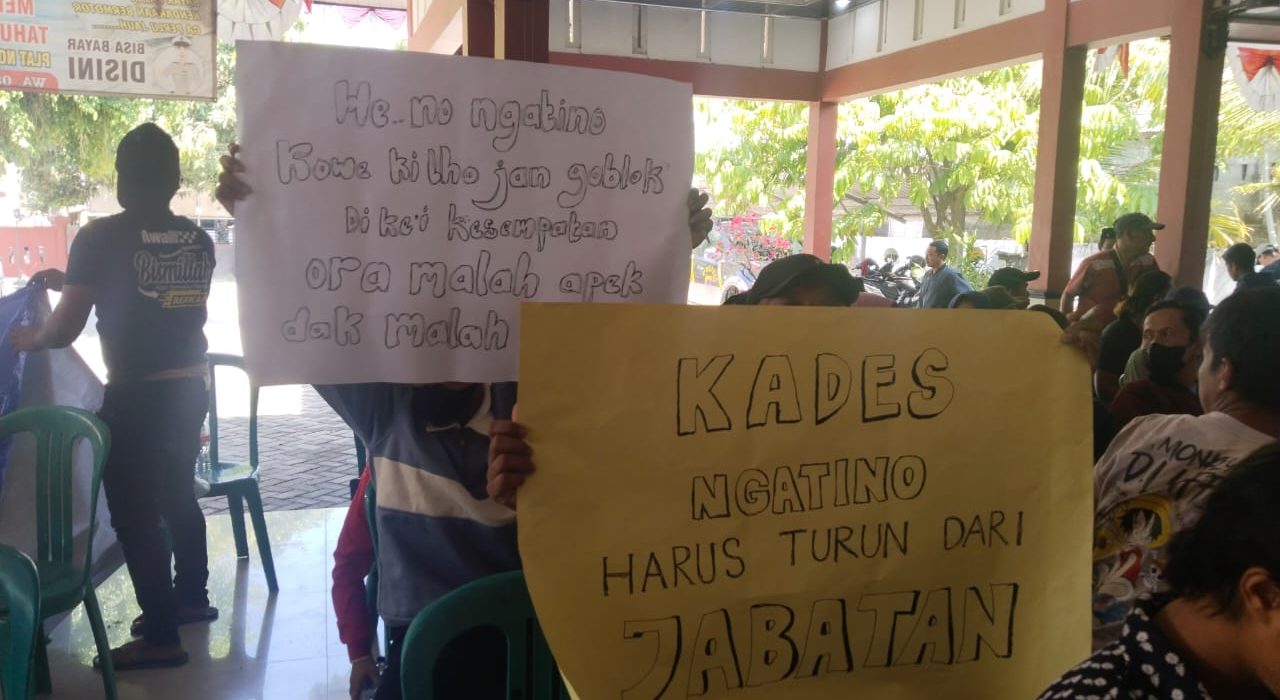 ME
TAHU
PLAT NO
BISA BAYAR
DISINI
WA 08
He..no ngatino
Kowe ki lho jan goblok
Di ke'i kesempatan
ora malah apek
dak malah
KADES
NGATINO
HARUS TURUN DARI
JABATAN
Awali
Bismillah
MONKEY